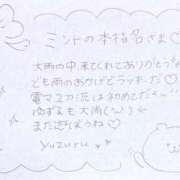 ミントの本指名さま♡
大雨の中来てくれてありがとう♡
ども雨のおかげでラッキーだ♡
電マ2刀流は初めてだぁ〜
ゆずるも大雨(笑)
また遊ぼうね♡
yuzuru